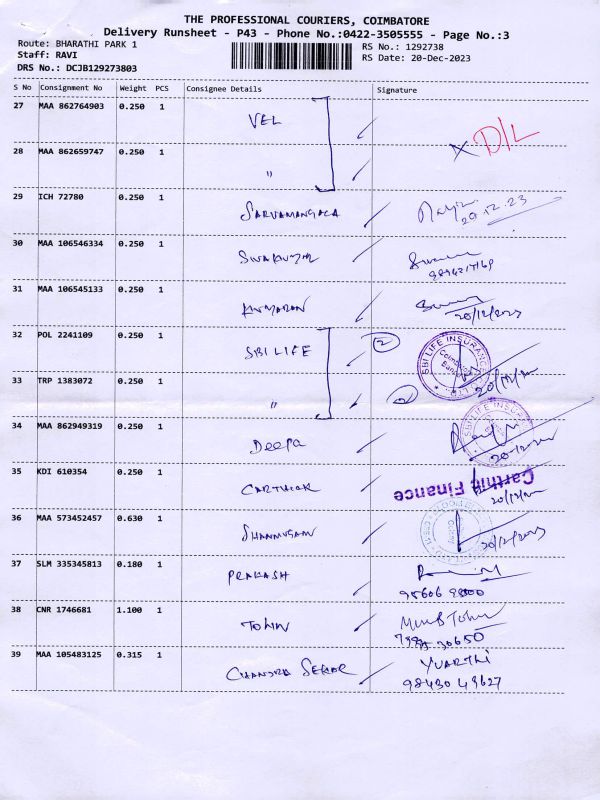 THE PROFESSIONAL COURIERS, COIMBATORE
Delivery Runsheet - P43 - Phone No.:0422-3505555 - Page No.:3
Route: BHARATHI PARK 1
Staff: RAVI
DRS No.: DCJB129273803
RS No.: 1292738
RS Date: 20-Dec-2023
S No Consignment No Weight PCS Consignee Details Signature
27 MAA 862764903 0.250 1 VEL
X D/L
28 MAA 862659747 0.250 1 "
29 ICH 72780 0.250 1 SARVAMANGALA
20.12.23
30 MAA 106546334 0.250 1
31 MAA 106545133 0.250 1 KUMARAN
20/12/2023
32 POL 2241109 0.250 1 SBI LIFE 2
SBI LIFE INSURANCE
33 TRP 1383072 0.250 1 "
34 MAA 862949319 0.250 1 Deepa
SBI LIFE INSUR
35 KDI 610354 0.250 1
Carthik Finance
36 MAA 573452457 0.630 1 SHANMUGAM
20/12/2023
37 SLM 335345813 0.180 1 PRAKASH
38 CNR 1746681 1.100 1
30650
39 MAA 105483125 0.315 1 CHANDRA SEKAR
YUARTHI
98430 49627